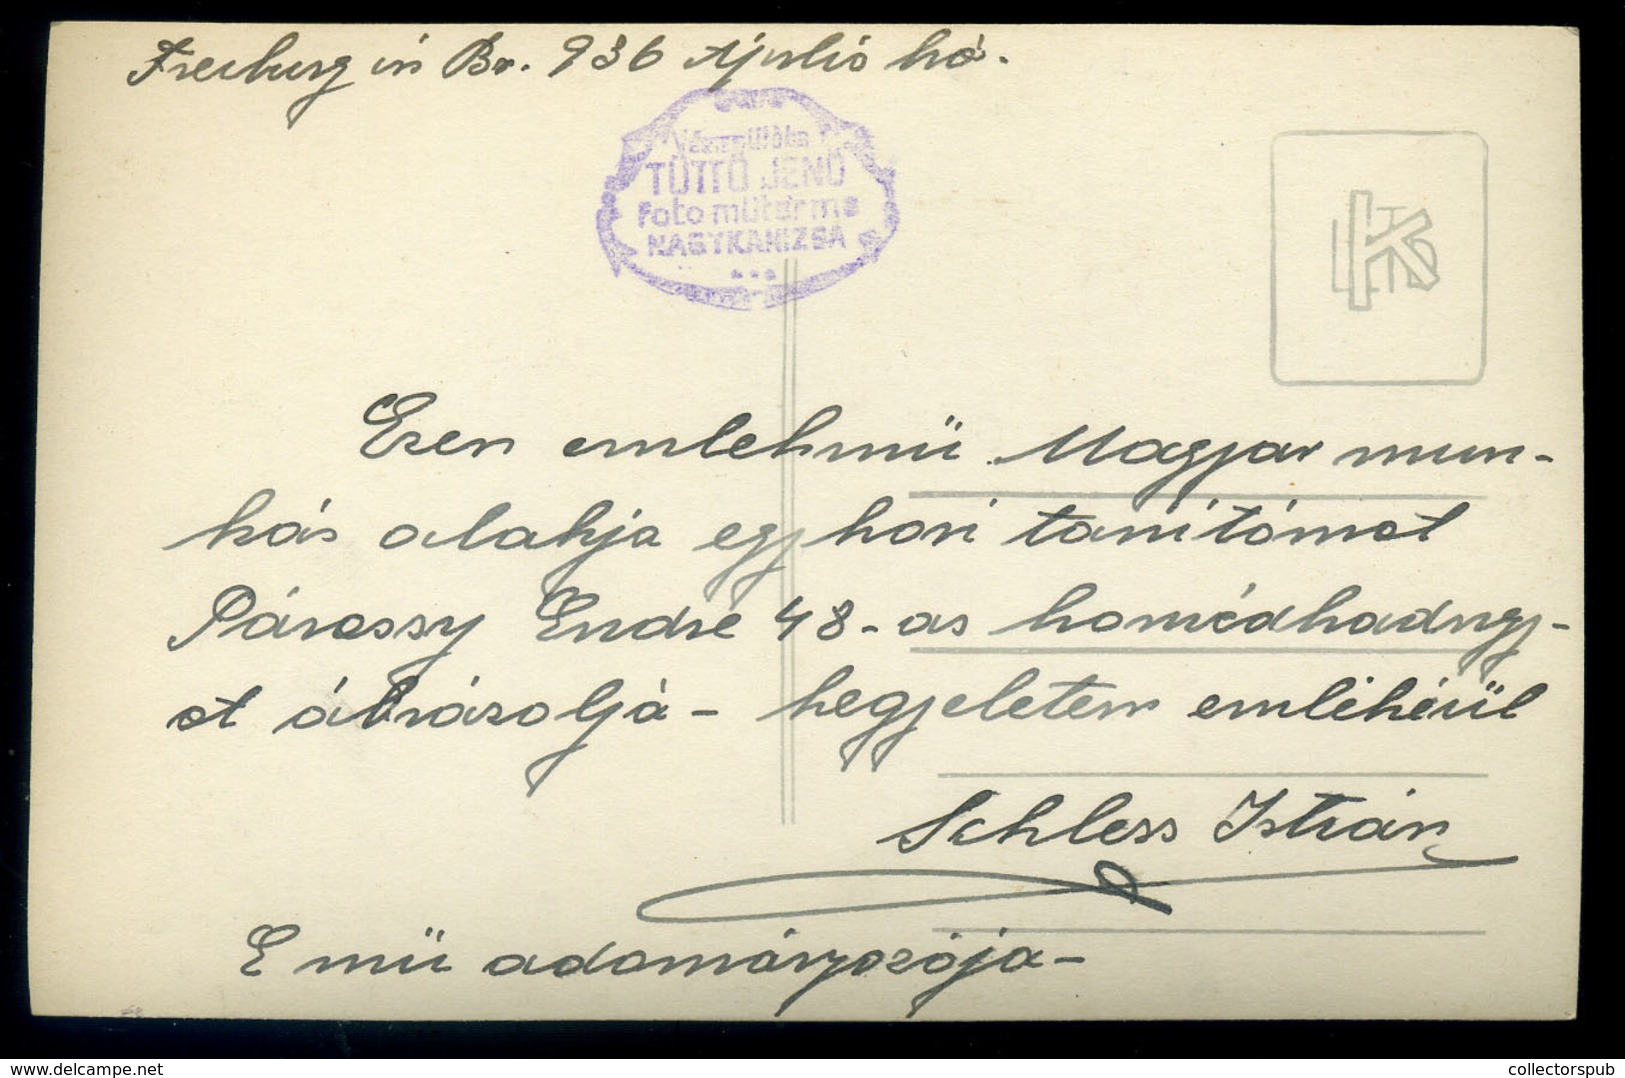 Freiburg in Br. 936 Ápulió hó.
Készititöke
TÜTTŐ JENŐ
Foto műterme
NAGYKANIZSA
LTK
Ezen emlekmü Magyar mun-
kás alakja egykori tanitómat
Párossy Endre 48-as homédhadngy-
at ábrázolja - hegyeletem emlékéül
Schless István
E mü adományozója -
www.delcampe.net
collectorspub